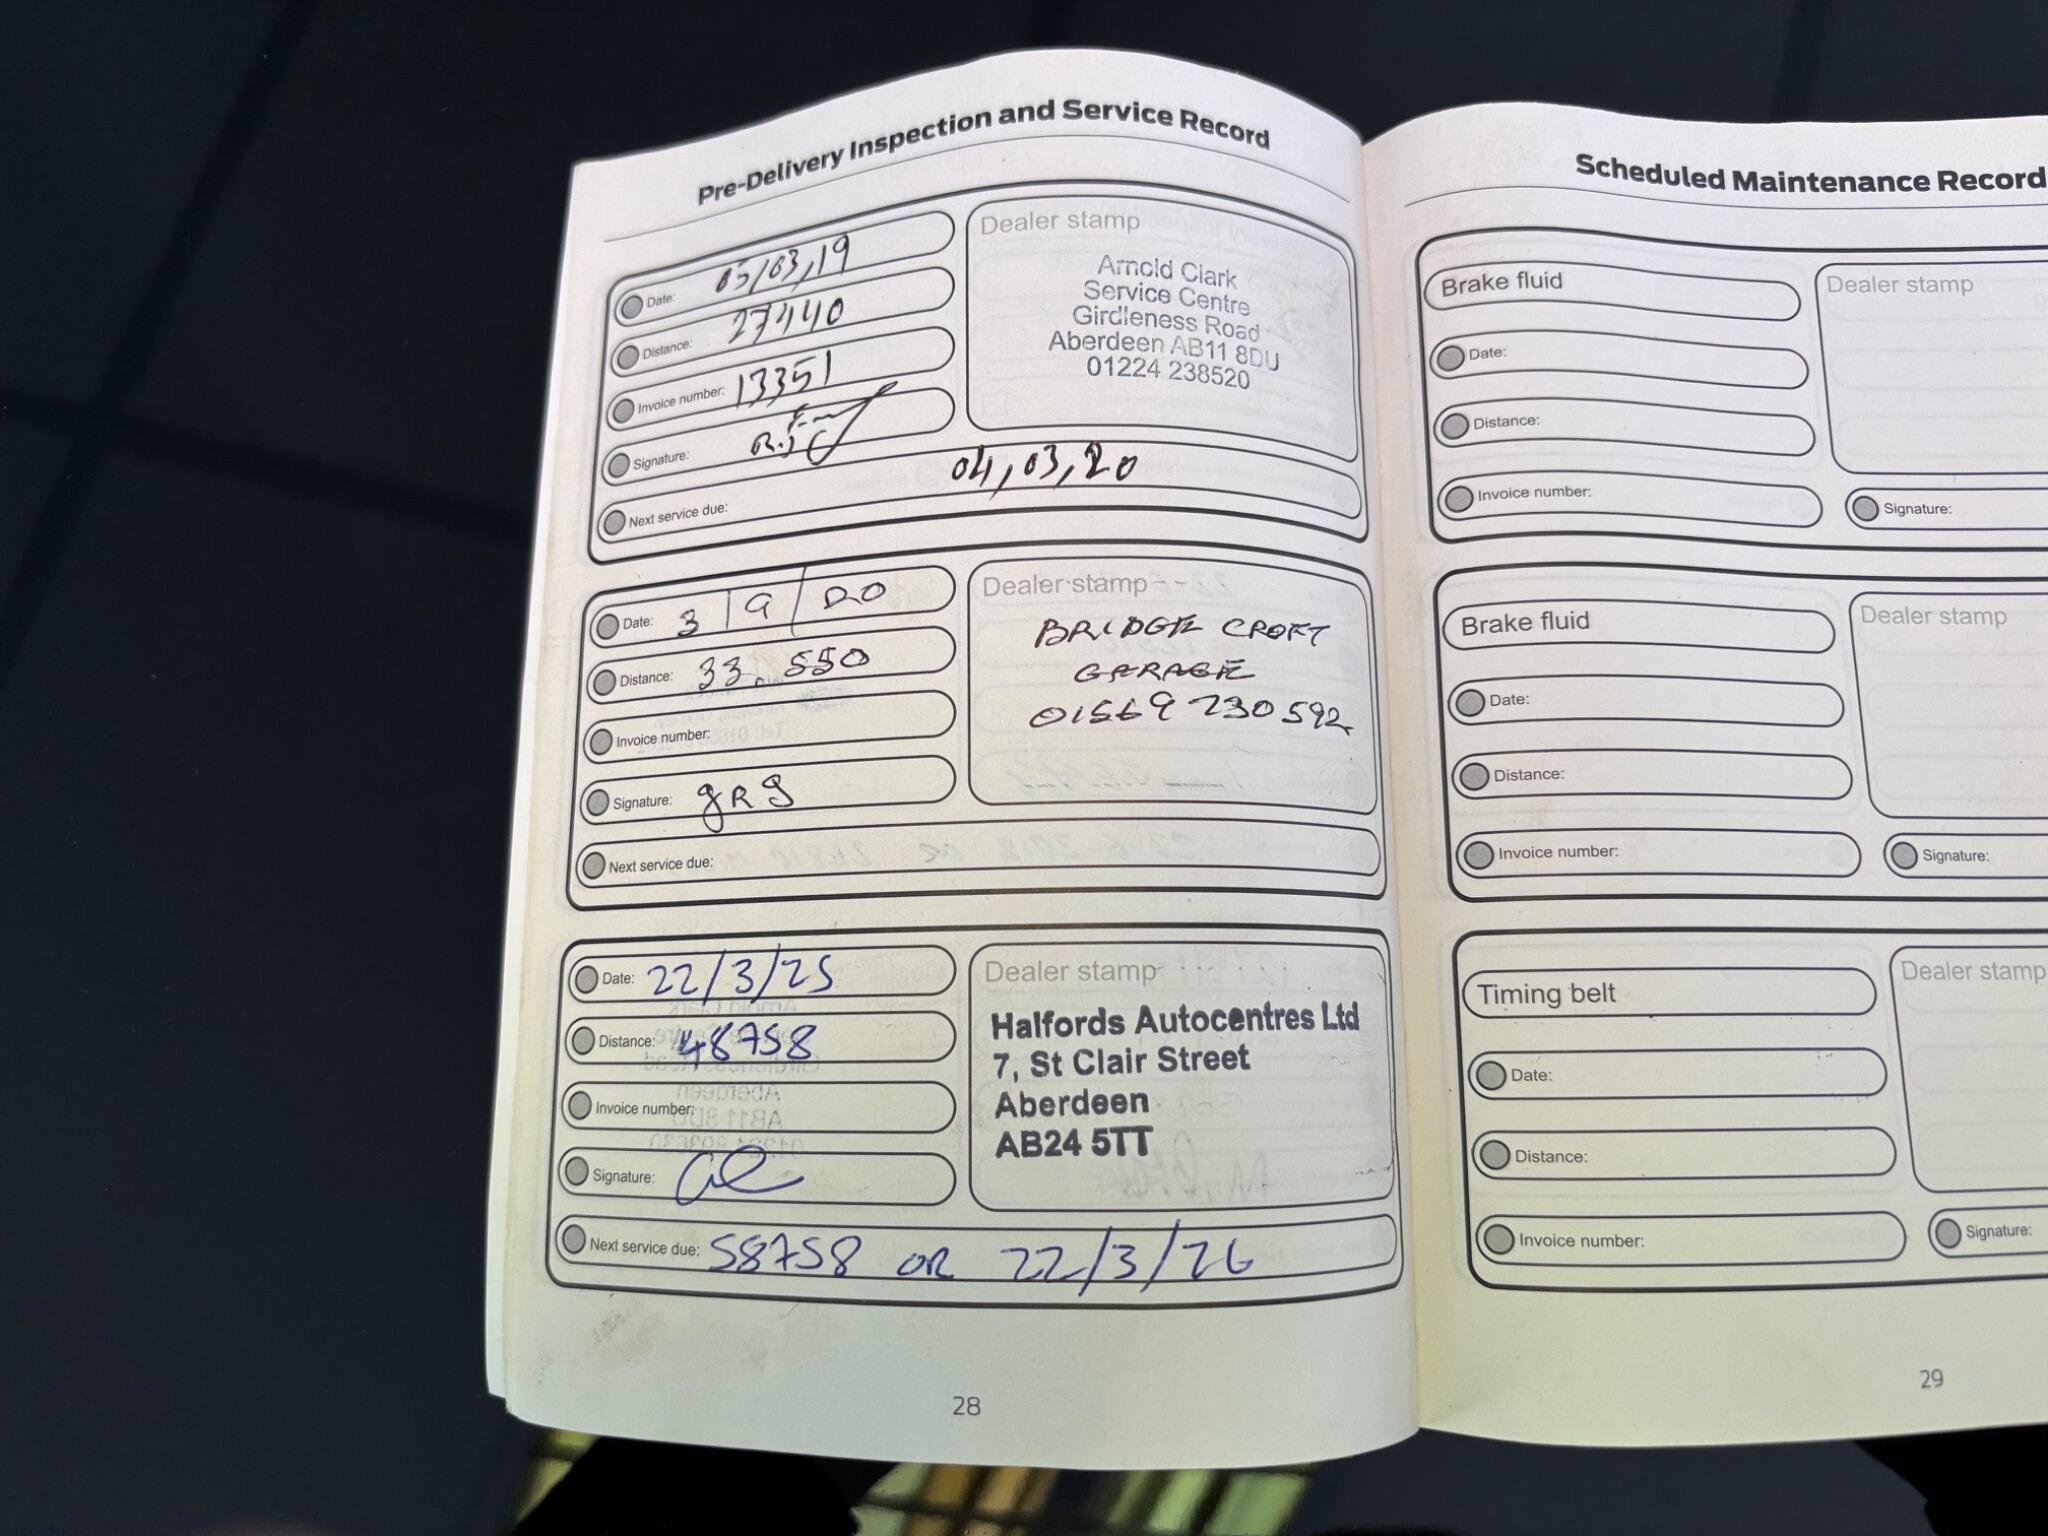 Pre-Delivery Inspection and Service Record
Date: 05/03,19
Distance: 27440
Invoice number: 13351
Signature:
Next service due: 04,03,20
Dealer stamp
Arnold Clark
Service Centre
Girdleness Road
Aberdeen AB11 8DU
01224 238520
Date: 3/9/20
Distance: 33.550
Invoice number:
Signature: gRg
Next service due:
Dealer stamp
BRIDGE CROFT
GARAGE
01569 730592
Date: 22/3/25
Distance: 48758
Invoice number:
Signature:
Next service due: 58758 OR 22/3/26
Dealer stamp
Halfords Autocentres Ltd
7, St Clair Street
Aberdeen
AB24 5TT
28
Scheduled Maintenance Record
Brake fluid
Date:
Distance:
Invoice number:
Dealer stamp
Signature:
Brake fluid
Date:
Distance:
Invoice number:
Dealer stamp
Signature:
Timing belt
Date:
Distance:
Invoice number:
Dealer stamp
Signature:
29